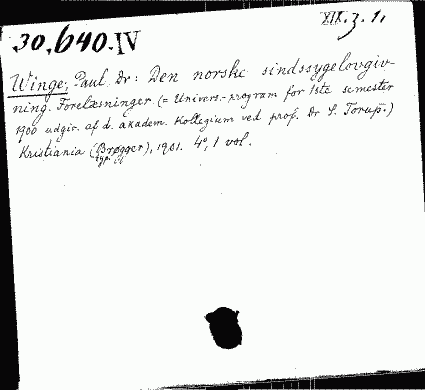 XIX.3.1,
30,640.IV
Winge; Paul Dr: Den norske sindssygelovgiv-
ning. Forelæsninger. (= Univers.-program for 1ste semester
1900 udgiv. af d. akadem. Kollegium ved prof. Dr S. Torup.)
Kristiania (Brøgger), 1901. 4°, 1 vol.